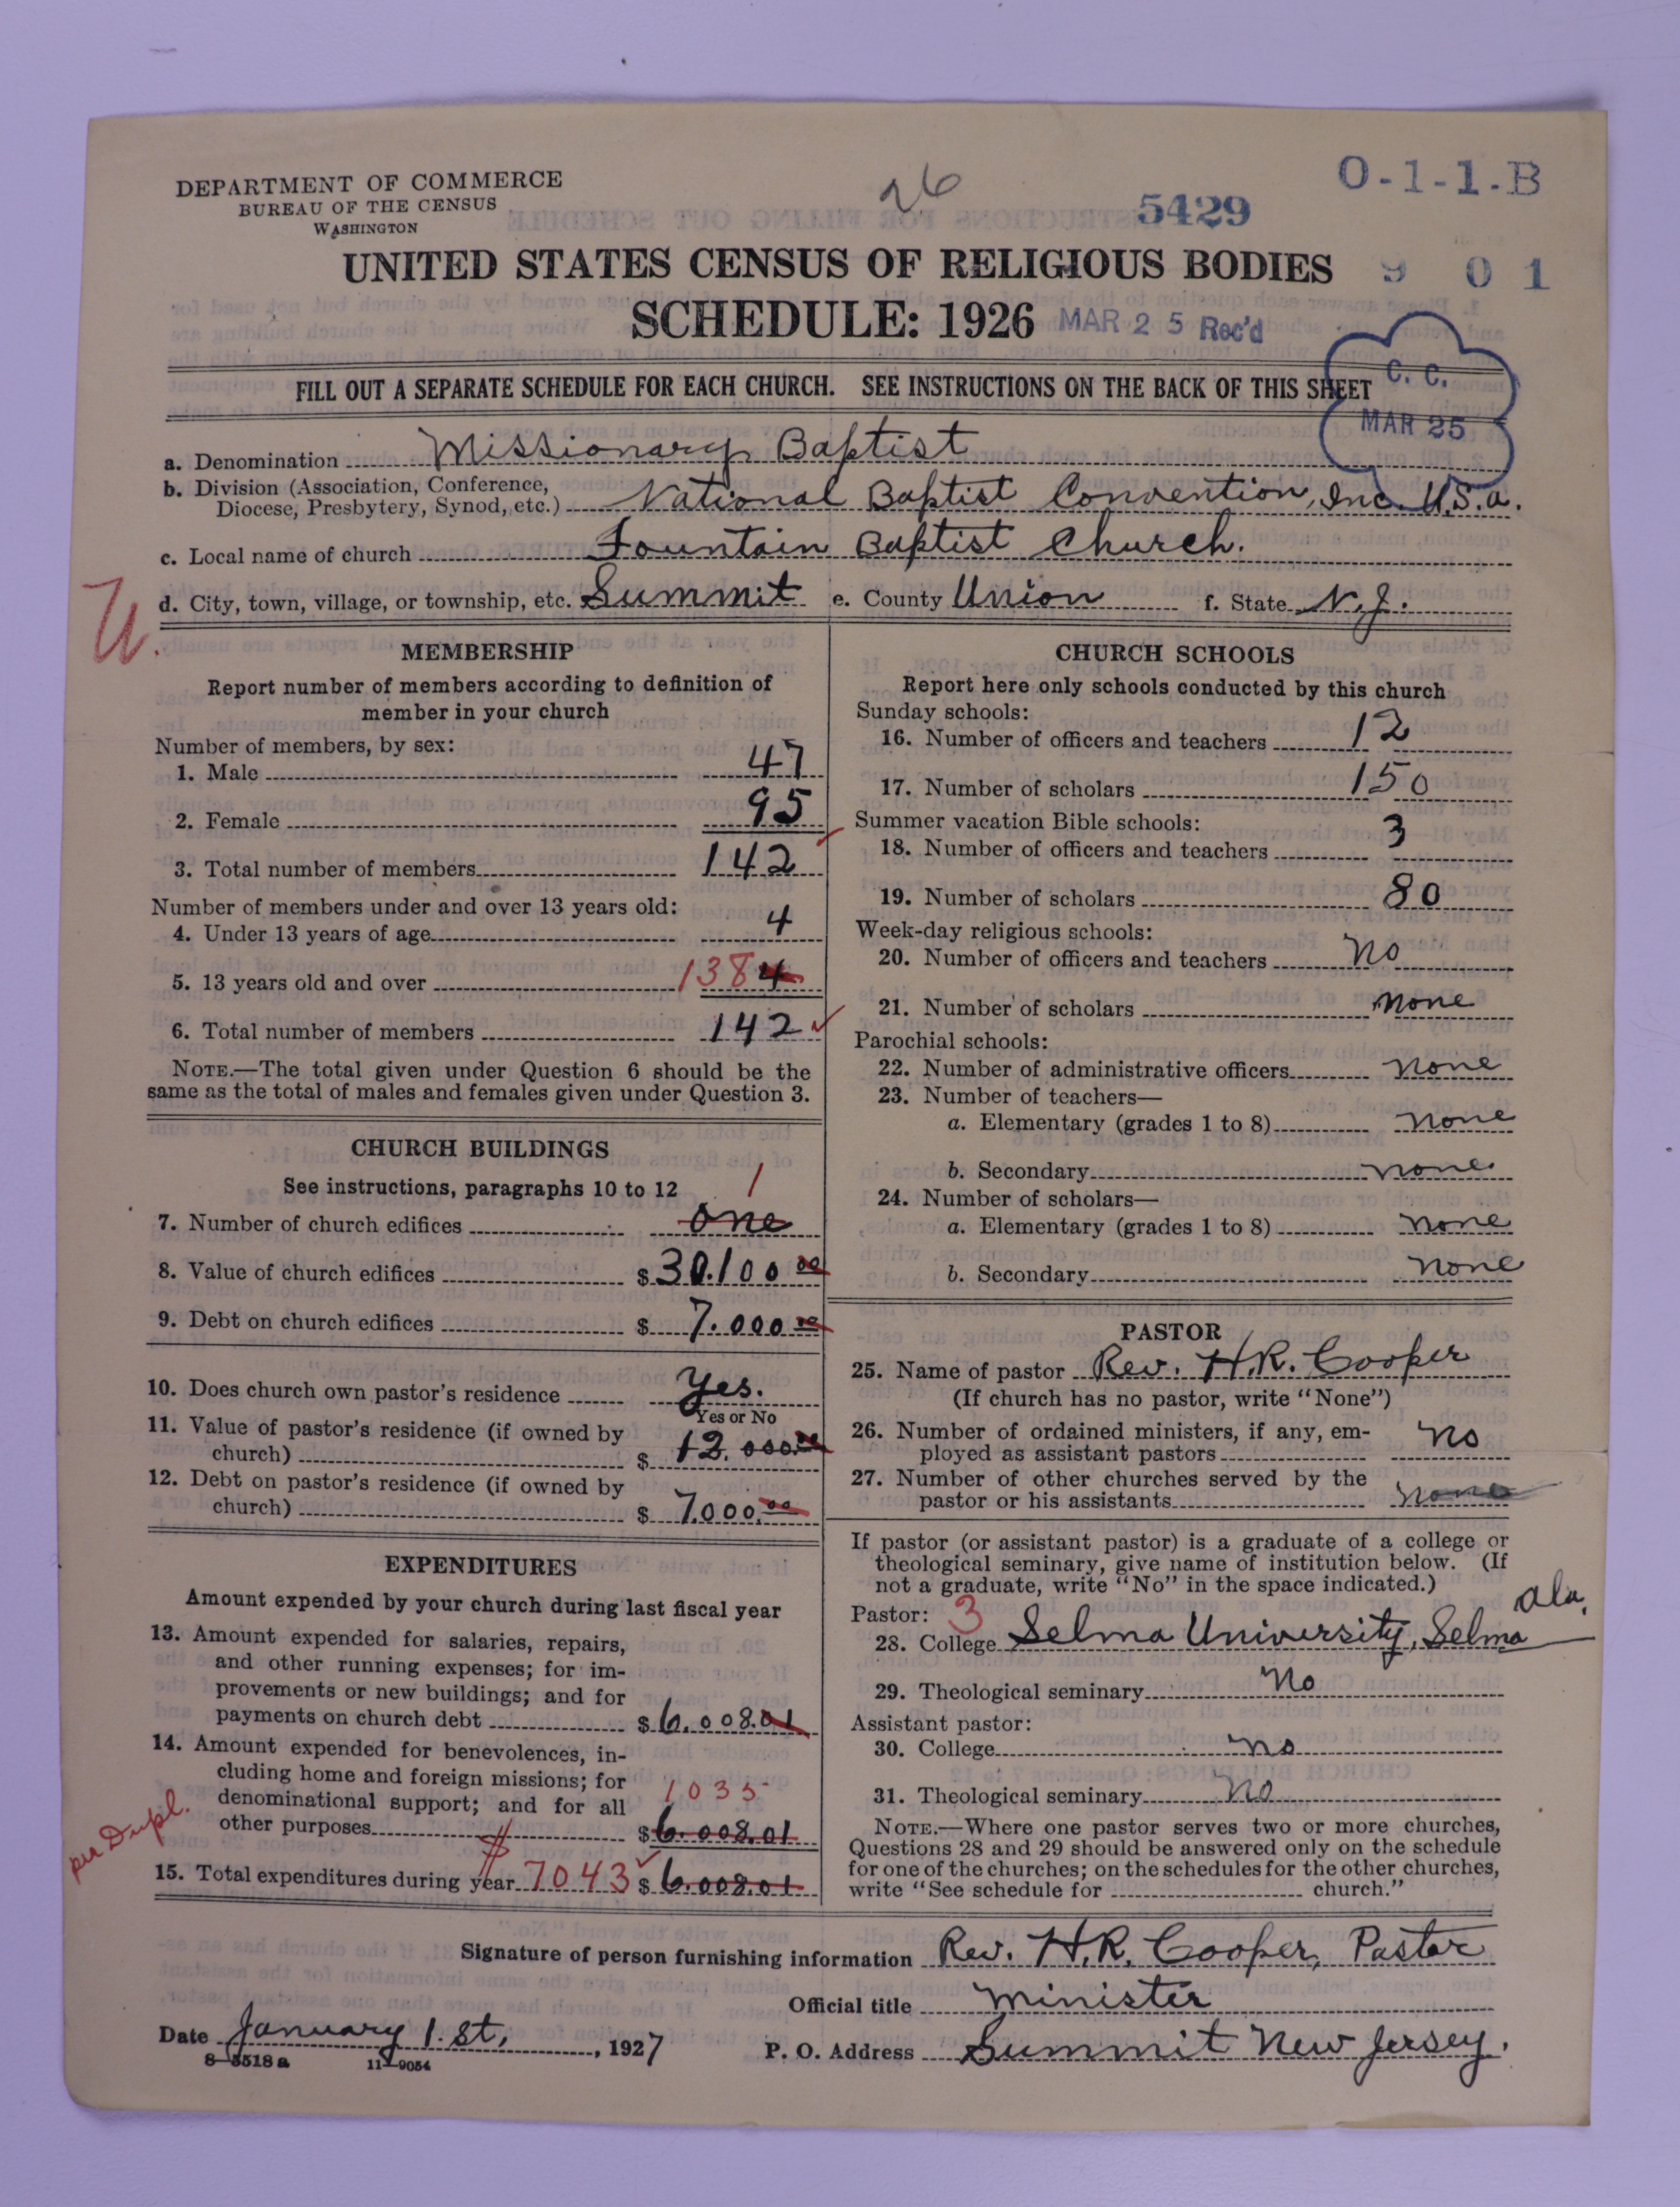 DEPARTMENT OF COMMERCE
BUREAU OF THE CENSUS
WASHINGTON
26
5429
O-1-1-B
UNITED STATES CENSUS OF RELIGIOUS BODIES
9 0 1
SCHEDULE: 1926
MAR 25 Rec'd
FILL OUT A SEPARATE SCHEDULE FOR EACH CHURCH. SEE INSTRUCTIONS ON THE BACK OF THIS SHEET
C. C.
MAR 25
a. Denomination Missionary Baptist
b. Division (Association, Conference,
Diocese, Presbytery, Synod, etc.) National Baptist Convention, Inc. U.S.a.
c. Local name of church Fountain Baptist Church.
d. City, town, village, or township, etc. Summit e. County Union f. State N.J.
U.
MEMBERSHIP
Report number of members according to definition of
member in your church
Number of members, by sex:
1. Male 47
2. Female 95
3. Total number of members 142
Number of members under and over 13 years old:
4. Under 13 years of age 4
5. 13 years old and over 138 4
6. Total number of members 142
NOTE.—The total given under Question 6 should be the
same as the total of males and females given under Question 3.
CHURCH BUILDINGS
See instructions, paragraphs 10 to 12
1
7. Number of church edifices one
8. Value of church edifices $30.100 00
9. Debt on church edifices $7.000 00
10. Does church own pastor's residence Yes.
Yes or No
11. Value of pastor's residence (if owned by
church) $12.000.00
12. Debt on pastor's residence (if owned by
church) $7.000.00
EXPENDITURES
Amount expended by your church during last fiscal year
13. Amount expended for salaries, repairs,
and other running expenses; for im-
provements or new buildings; and for
payments on church debt $6.008.01
14. Amount expended for benevolences, in-
cluding home and foreign missions; for
denominational support; and for all
1035
other purposes $6.008.01
per Dupl.
15. Total expenditures during year $7043 $6.008.01
CHURCH SCHOOLS
Report here only schools conducted by this church
Sunday schools:
16. Number of officers and teachers 12
17. Number of scholars 150
Summer vacation Bible schools:
18. Number of officers and teachers 3
19. Number of scholars 80
Week-day religious schools:
20. Number of officers and teachers No
21. Number of scholars none
Parochial schools:
22. Number of administrative officers none
23. Number of teachers—
a. Elementary (grades 1 to 8) none
b. Secondary none
24. Number of scholars—
a. Elementary (grades 1 to 8) none
b. Secondary none
PASTOR
25. Name of pastor Rev. H.R. Cooper
(If church has no pastor, write "None")
26. Number of ordained ministers, if any, em-
ployed as assistant pastors No
27. Number of other churches served by the
pastor or his assistants none
If pastor (or assistant pastor) is a graduate of a college or
theological seminary, give name of institution below. (If
not a graduate, write "No" in the space indicated.)
Pastor: 3
28. College Selma University, Selma Ala.
29. Theological seminary No
Assistant pastor:
30. College no
31. Theological seminary no
NOTE.—Where one pastor serves two or more churches,
Questions 28 and 29 should be answered only on the schedule
for one of the churches; on the schedules for the other churches,
write "See schedule for church."
Signature of person furnishing information Rev. H.R. Cooper, Pastor
Official title Minister
Date January 1. st, 1927
P. O. Address Summit New Jersey.
8-5518a 11-9054